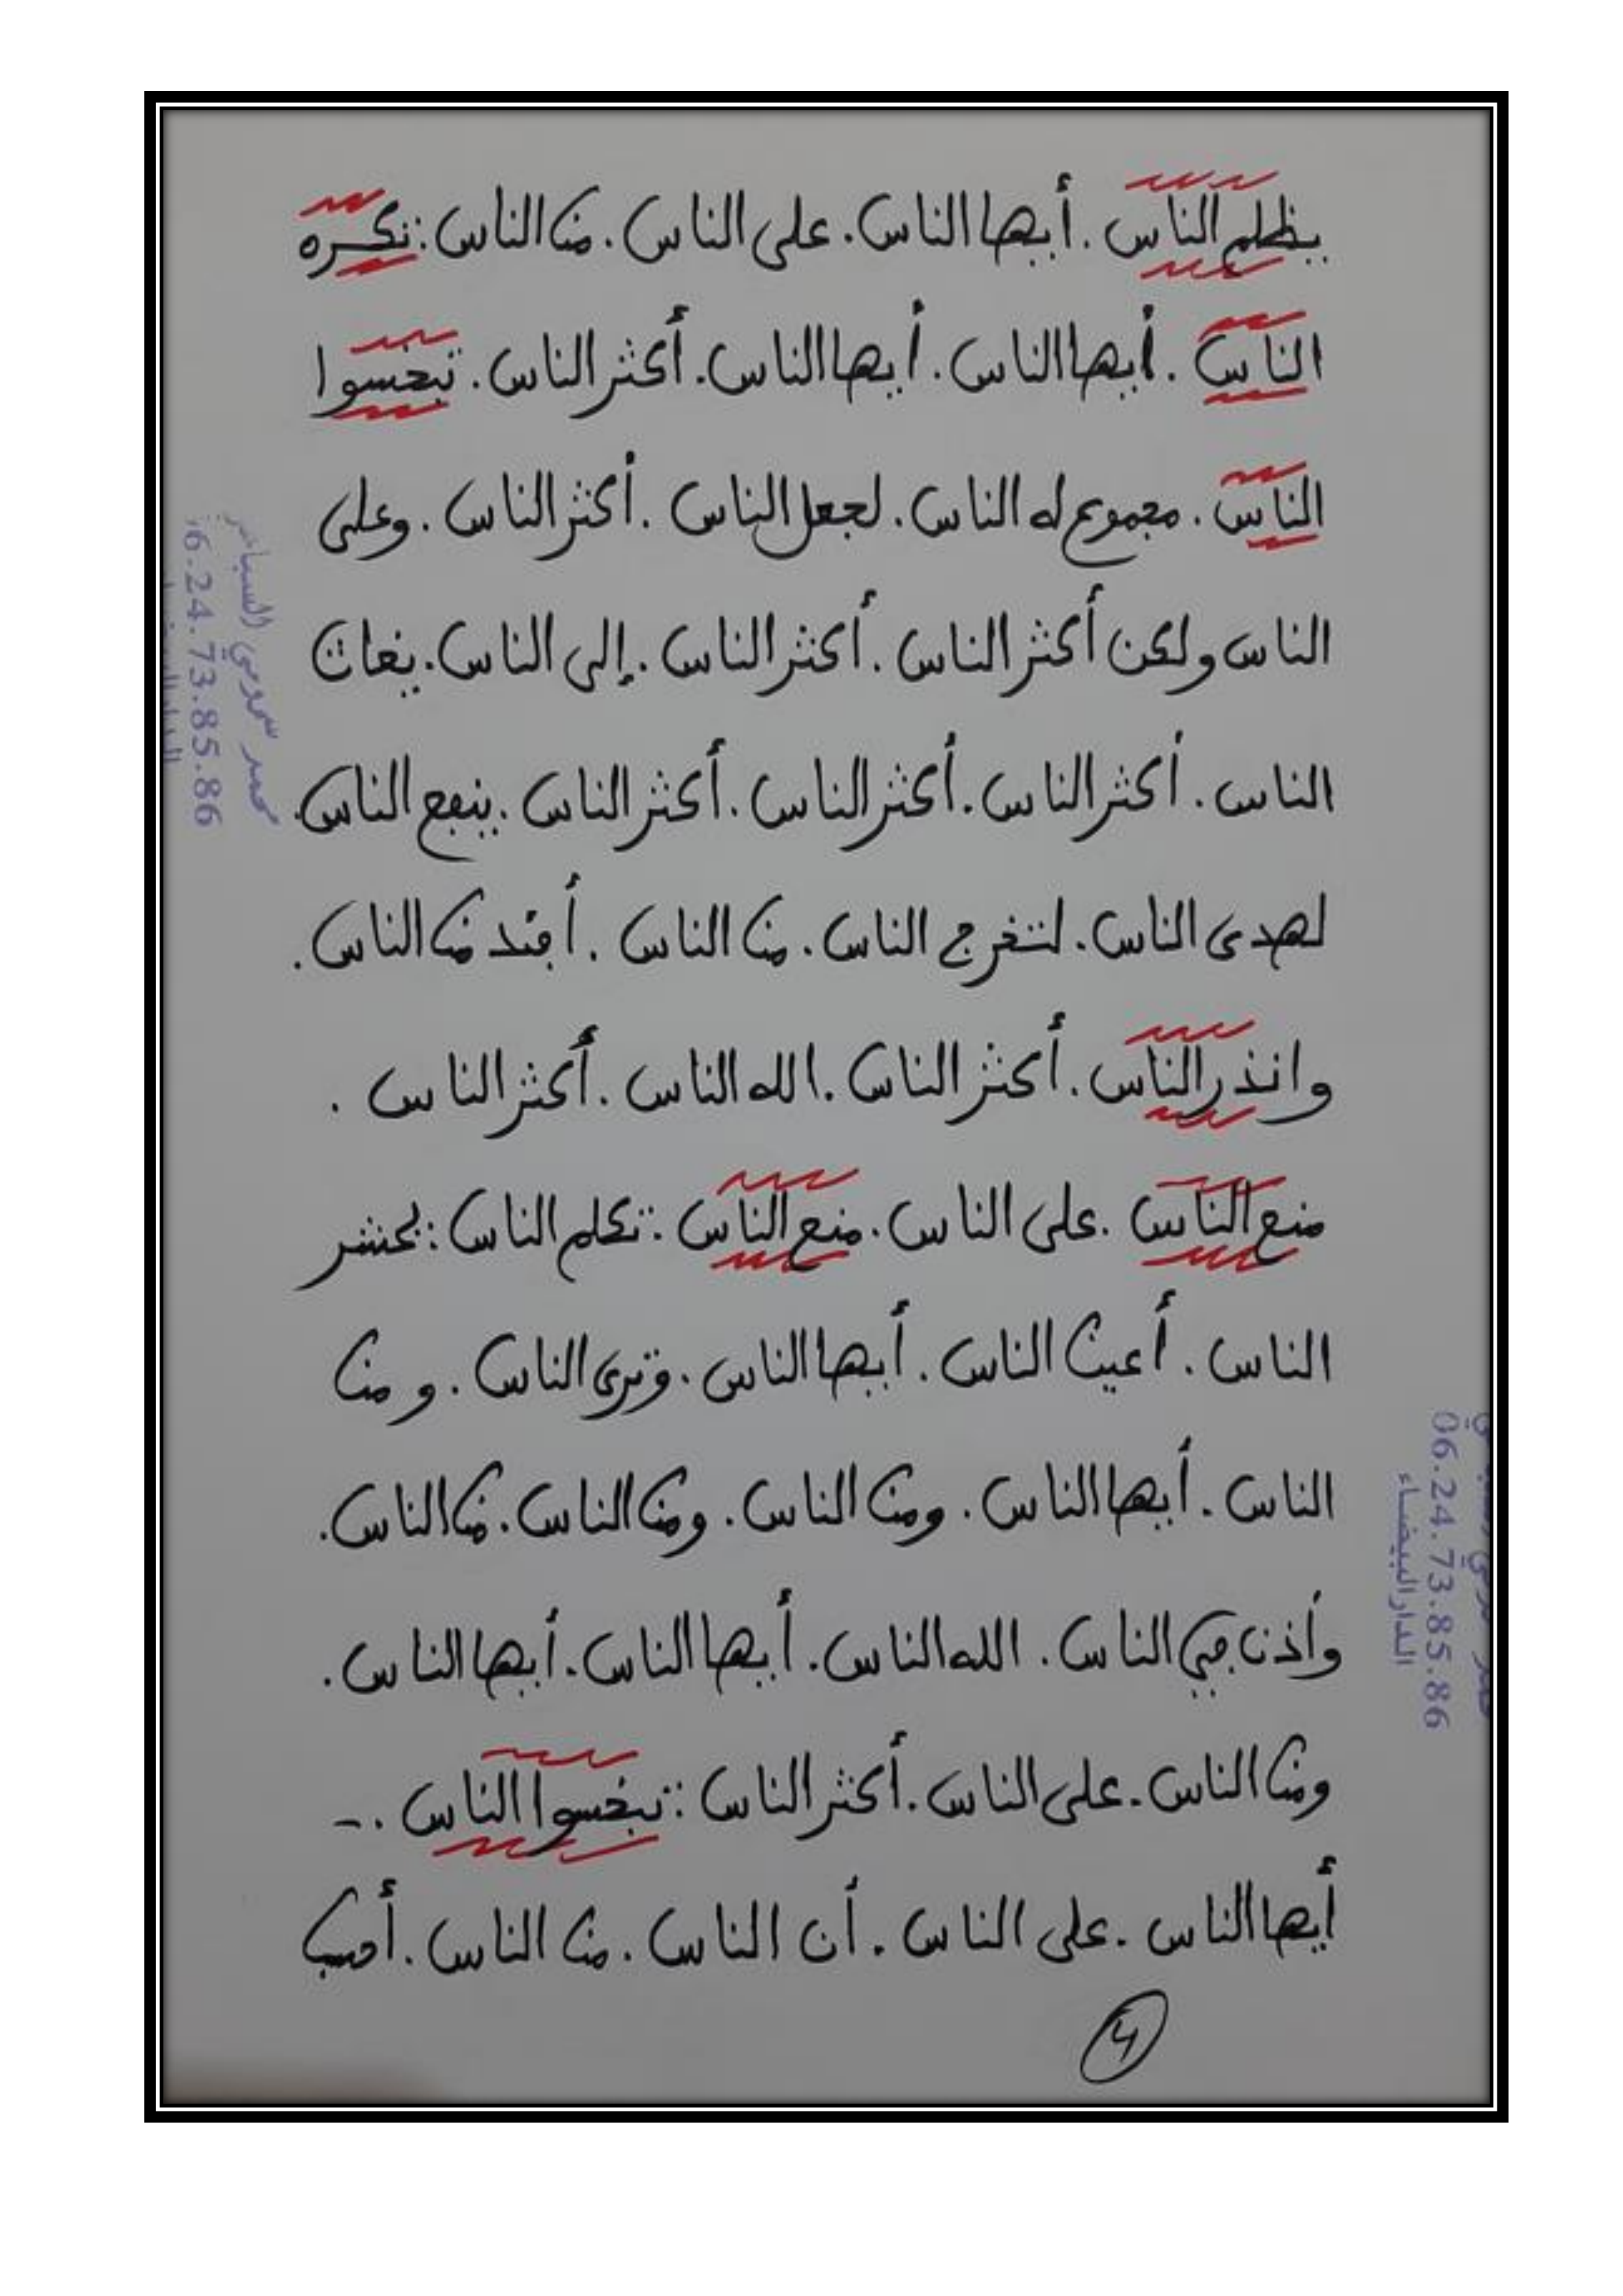 يظلم الناس . أيها الناس . على الناس . من الناس : تكره
الناس . أيها الناس . أيها الناس . أكثر الناس . تبخسوا
الناس . مجموع له الناس . لجعل الناس . أكثر الناس . وعلى
الناس ولكن أكثر الناس . أكثر الناس . إلى الناس . يغاث
الناس . أكثر الناس . أكثر الناس . أكثر الناس . ينفع الناس .
لهدى الناس . لتخرج الناس . من الناس . أفئدة من الناس .
وانذر الناس . أكثر الناس . الله الناس . أكثر الناس .
منع الناس . على الناس . منع الناس : تكلم الناس : يحشر
الناس . أعين الناس . أيها الناس . وترى الناس . ومن
الناس . أيها الناس . ومن الناس . ومن الناس . من الناس .
وأذن في الناس . الله الناس . أيها الناس . أيها الناس .
ومن الناس . على الناس . أكثر الناس : تبخسوا الناس . -
أيها الناس . على الناس . أن الناس . من الناس . أحسب
4
06.24.73.85.86
الدار البيضاء
6.24.73.85.86